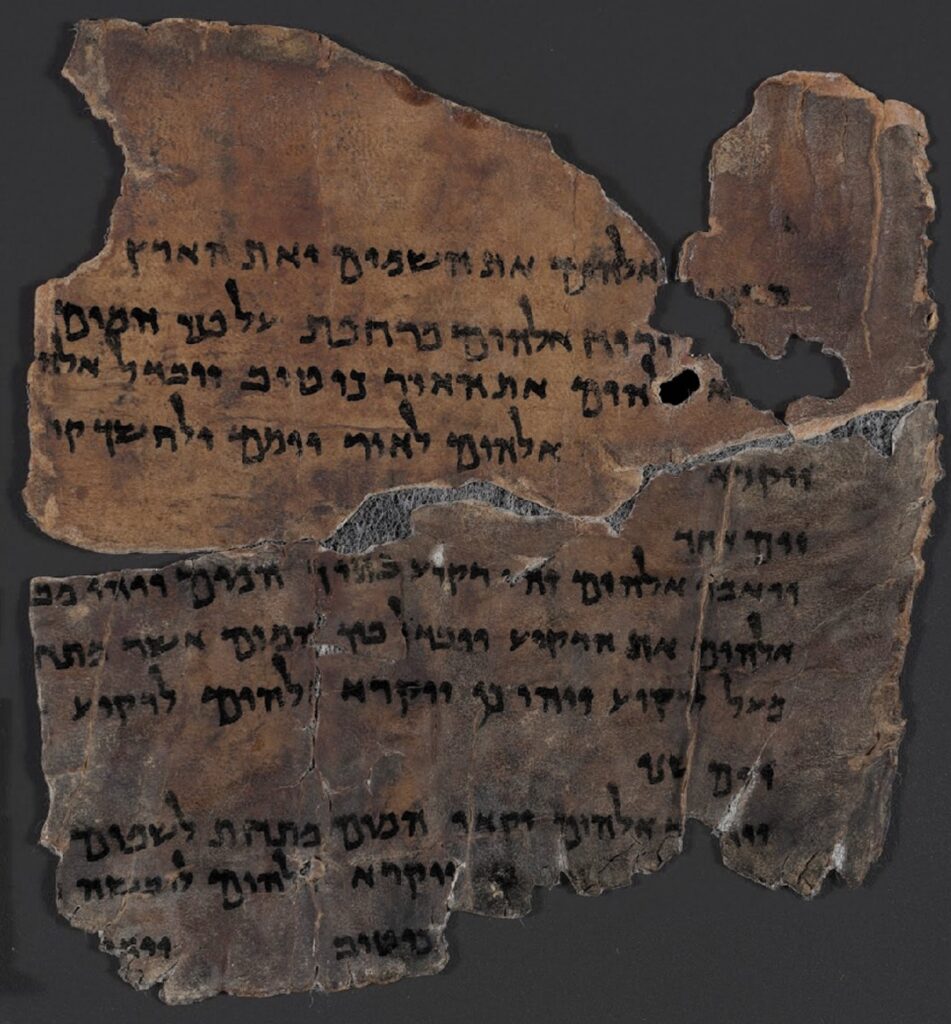 אלהים את השמים ואת הארץ
ורוח אלהים מרחפת על פני המים
אלהים את האור כי טוב ויבדל אלה
ויקרא אלהים לאור יומם ולחשך קר
יום אחד
ויאמר אלהים יהי רקיע בתוך המים ויהי מב
אלהים את הרקיע ויבדל בין המים אשר מתח
מעל לרקיע ויהי כן ויקרא אלהים לרקיע
יום שני
אלהים יקאו המים מתחת לשמים
ויקרא אלהים ליבשה
כי טוב ויאמ